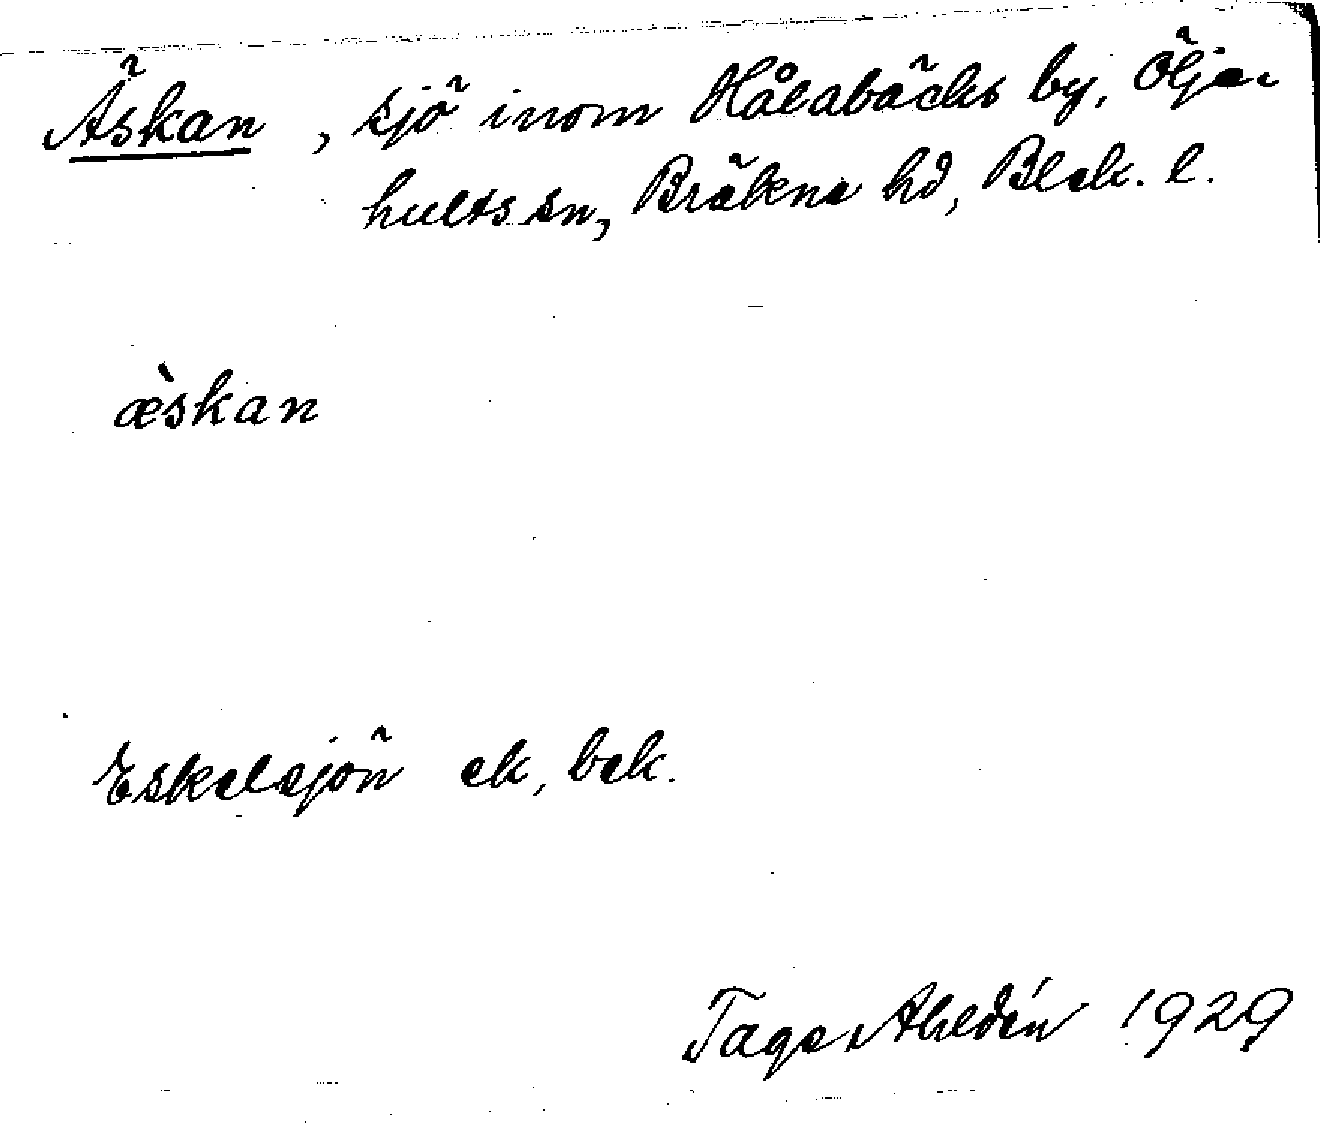 Äskan, sjö inom Hålabäcks by, Ölje-
hults sn, Bräkne hd, Blek. l.
æ̀skan
Eskelsjön ek, bek.
Tage Ahldén 1929